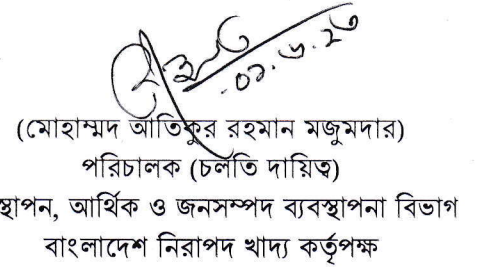 ০১.৬.২৩
(মোহাম্মদ আতিকুর রহমান মজুমদার)
পরিচালক (চলতি দায়িত্ব)
স্থাপন, আর্থিক ও জনসম্পদ ব্যবস্থাপনা বিভাগ
বাংলাদেশ নিরাপদ খাদ্য কর্তৃপক্ষ